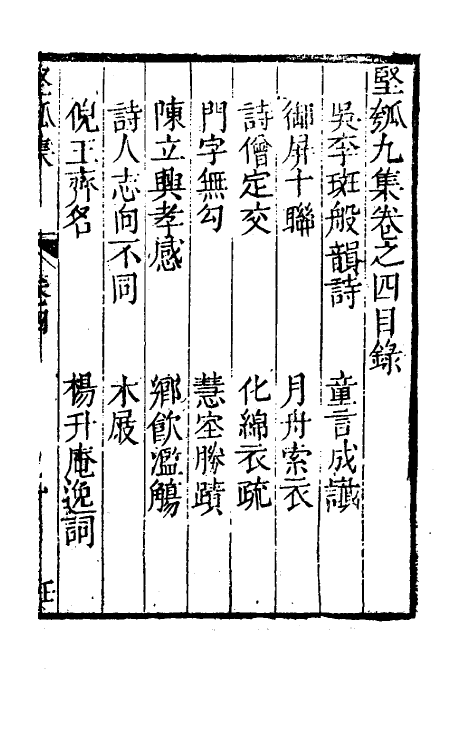 堅瓠九集卷之四目錄
吳李斑般韻詩　童言成讖
御屏十聯　月舟索衣
詩僧定交　化綿衣疏
門字無勾　慧空勝蹟
陳立興孝感　鄉飲濫觴
詩人志向不同　木屐
倪王齊名　楊升庵逸詞
堅瓠集